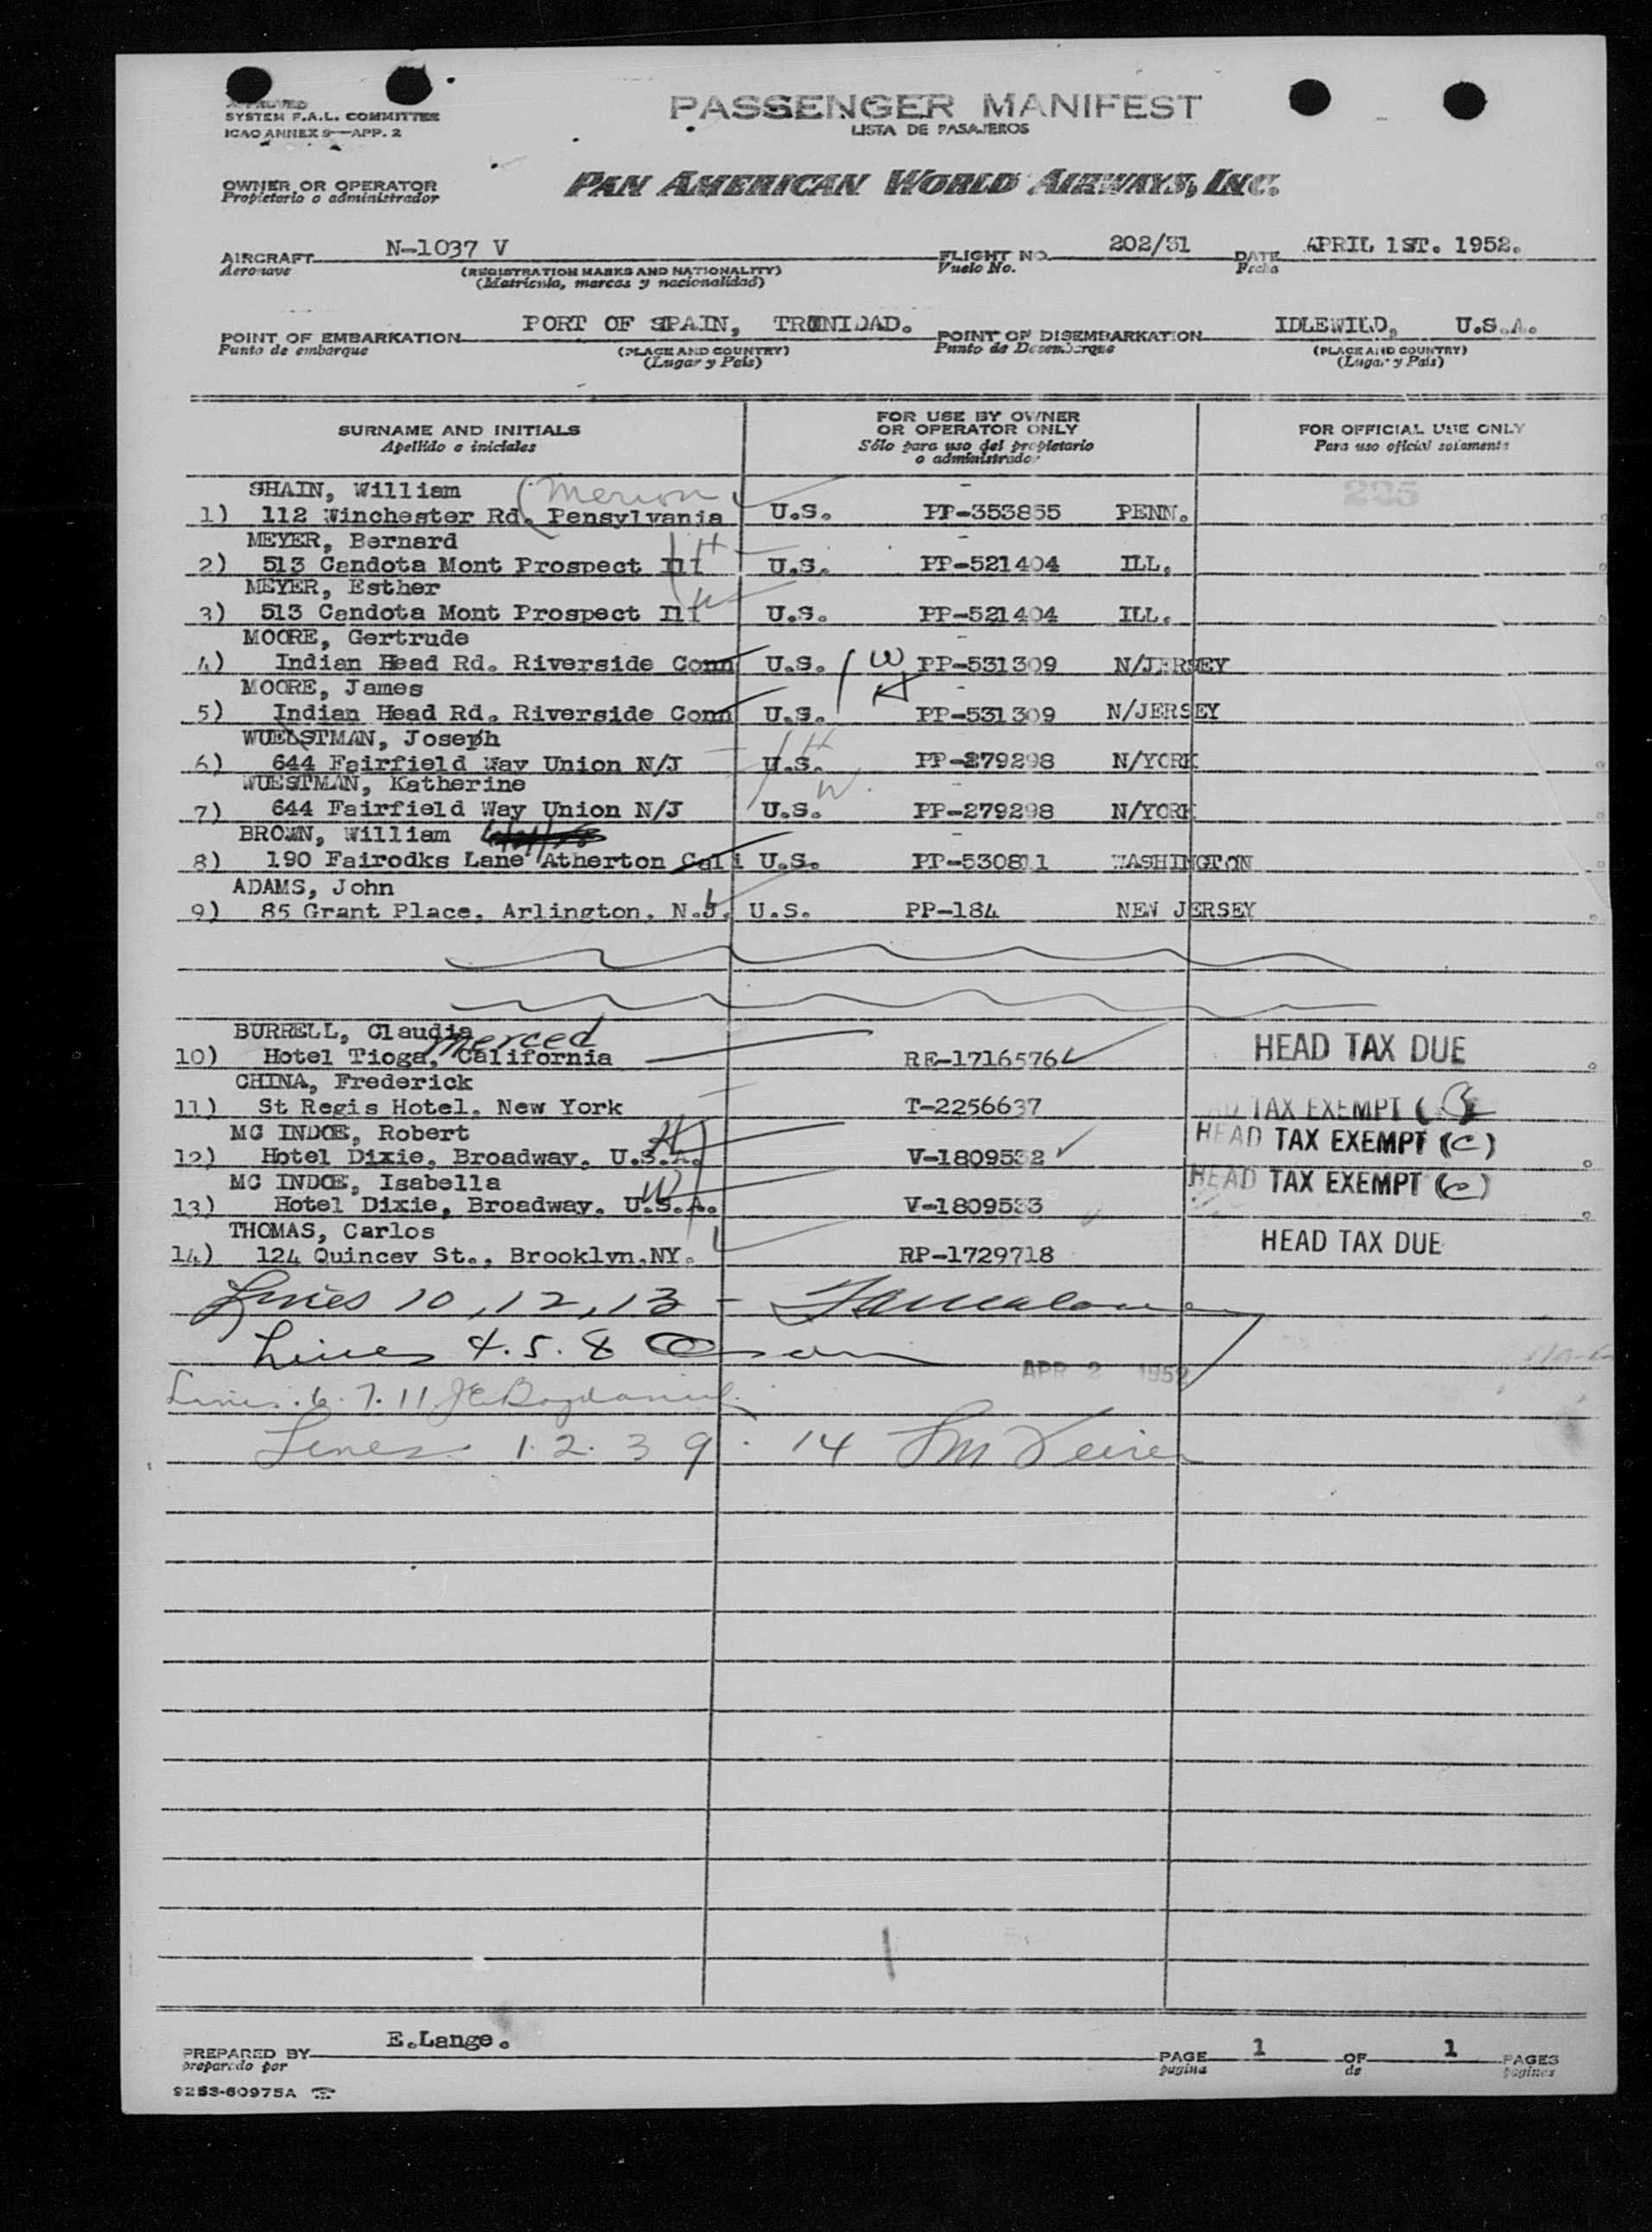 APPROVED
SYSTEM F.A.L. COMMITTEE
ICAO ANNEX 9—APP. 2
PASSENGER MANIFEST
LISTA DE PASAJEROS
OWNER OR OPERATOR
Propietario o administrador
PAN AMERICAN WORLD AIRWAYS, INC.
AIRCRAFT N-1037 V FLIGHT NO. 202/31 DATE APRIL 1ST. 1952.
Aeronave (REGISTRATION MARKS AND NATIONALITY) Vuelo No. Fecha
(Matricula, marcas y nacionalidad)
POINT OF EMBARKATION PORT OF SPAIN, TRONIDAD. POINT OF DISEMBARKATION IDLEWILD, U.S.A.
Punto de embarque (PLACE AND COUNTRY) Punto de Desembarque (PLACE AND COUNTRY)
(Lugar y País) (Lugar y País)
SURNAME AND INITIALS FOR USE BY OWNER OR OPERATOR ONLY FOR OFFICIAL USE ONLY
Apellido e iniciales Sólo para uso del propietario o administrador Para uso oficial solamente
SHAIN, William (Merion
1) 112 Winchester Rd. Pensylvania U.S. PP-353855 PENN.
MEYER, Bernard H
2) 513 Candota Mont Prospect Ill U.S. PP-521404 ILL.
MEYER, Esther W
3) 513 Candota Mont Prospect Ill U.S. PP-521404 ILL.
MOORE, Gertrude
4) Indian Head Rd. Riverside Conn U.S. W PP-531309 N/JERSEY
MOORE, James H
5) Indian Head Rd. Riverside Conn U.S. PP-531309 N/JERSEY
WUESTMAN, Joseph H
6) 644 Fairfield Way Union N/J U.S. PP-279298 N/YORK
WUESTMAN, Katherine W
7) 644 Fairfield Way Union N/J U.S. PP-279298 N/YORK
BROWN, William
8) 190 Fairodks Lane Atherton Cali U.S. PP-530811 WASHINGTON
ADAMS, John
9) 85 Grant Place, Arlington, N.J. U.S. PP-184 NEW JERSEY
BURRELL, Claudia Merced
10) Hotel Tioga, California RE-1716576 HEAD TAX DUE
CHINA, Frederick
11) St Regis Hotel. New York T-2256637 TAX EXEMPT
MC INDOE, Robert H
12) Hotel Dixie, Broadway. U.S.A. V-1809532 HEAD TAX EXEMPT (C)
MC INDOE, Isabella W
13) Hotel Dixie, Broadway. U.S.A. V-1809533 HEAD TAX EXEMPT (C)
THOMAS, Carlos
14) 124 Quincey St., Brooklyn.NY. RP-1729718 HEAD TAX DUE
Lines 10, 12, 13 -
Lines 4. 5. 8
APR 2 1952
Lines. 6. 7. 11
Lines 1. 2. 3 9. 14
PREPARED BY E.Lange. PAGE 1 OF 1 PAGES
preparado por pagina de paginas
9253-60975A